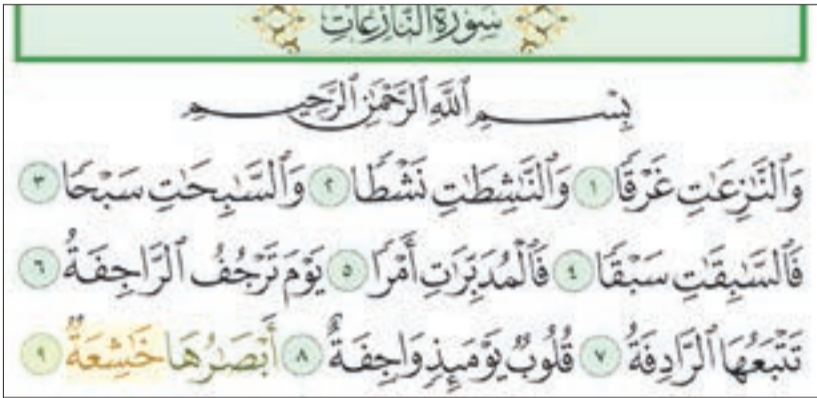 سورة النازعات
بِسْمِ ٱللَّهِ ٱلرَّحْمَٰنِ ٱلرَّحِيمِ
وَٱلنَّٰزِعَٰتِ غَرْقًا ١ وَٱلنَّٰشِطَٰتِ نَشْطًا ٢ وَٱلسَّٰبِحَٰتِ سَبْحًا ٣
فَٱلسَّٰبِقَٰتِ سَبْقًا ٤ فَٱلْمُدَبِّرَٰتِ أَمْرًا ٥ يَوْمَ تَرْجُفُ ٱلرَّاجِفَةُ ٦
تَتْبَعُهَا ٱلرَّادِفَةُ ٧ قُلُوبٌ يَوْمَئِذٍ وَاجِفَةٌ ٨ أَبْصَٰرُهَا خَٰشِعَةٌ ٩